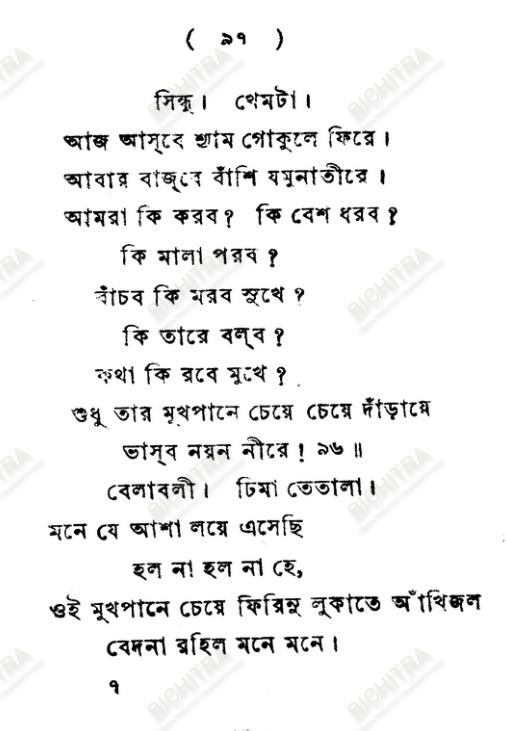 ( ৯৭ )
সিন্ধু। খেমটা।
আজ আস্‌বে শ্যাম গোকুলে ফিরে।
আবার বাজ্‌বে বাঁশি যমুনাতীরে।
আমরা কি করব? কি বেশ ধরব?
কি মালা পরব?
বাঁচব কি মরব সুখে?
কি তারে বল্‌ব?
কথা কি রবে মুখে?
শুধু তার মুখপানে চেয়ে চেয়ে দাঁড়ায়ে
ভাস্‌ব নয়ন নীরে! ৯৬॥
বেলাবলী। ঢিমা তেতালা।
মনে যে আশা লয়ে এসেছি
হল না হল না হে,
ওই মুখপানে চেয়ে ফিরিনু লুকাতে আঁখিজল
বেদনা রহিল মনে মনে।
৭
BICHITRA